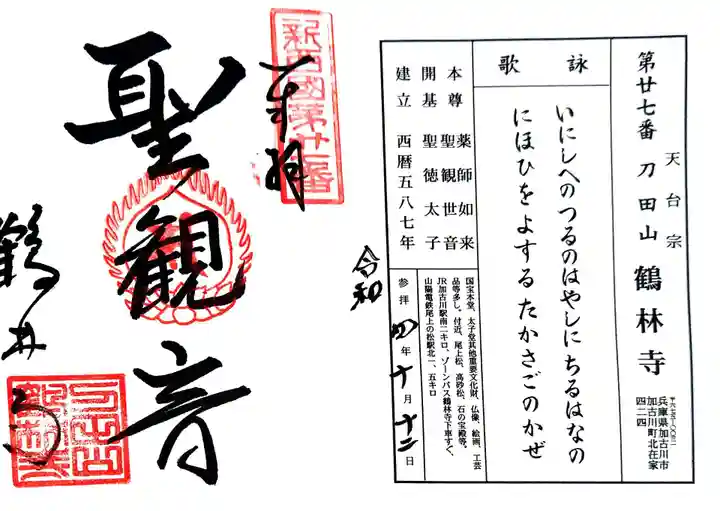 天台宗
第廿七番 刀田山 鶴林寺
兵庫県加古川市
加古川町北在家
四二四
詠歌
いにしへのつるのはやしにちるはなの
にほひをよするたかさごのかぜ
本尊 薬師如来
聖観世音
開基 聖徳太子
建立 西暦五八七年
国宝本堂、太子堂其他重要文化財、仏像、絵画、工芸
品等多し。付近、尾上松、高砂松、石の宝殿等。
JR加古川駅南二キロ、ゾーンバス鶴林寺下車すぐ、
山陽電鉄尾上の松駅北一、五キロ
令和
参拝 四年十月十二日
新西國第廿七番
奉拝
聖観音
鶴林寺